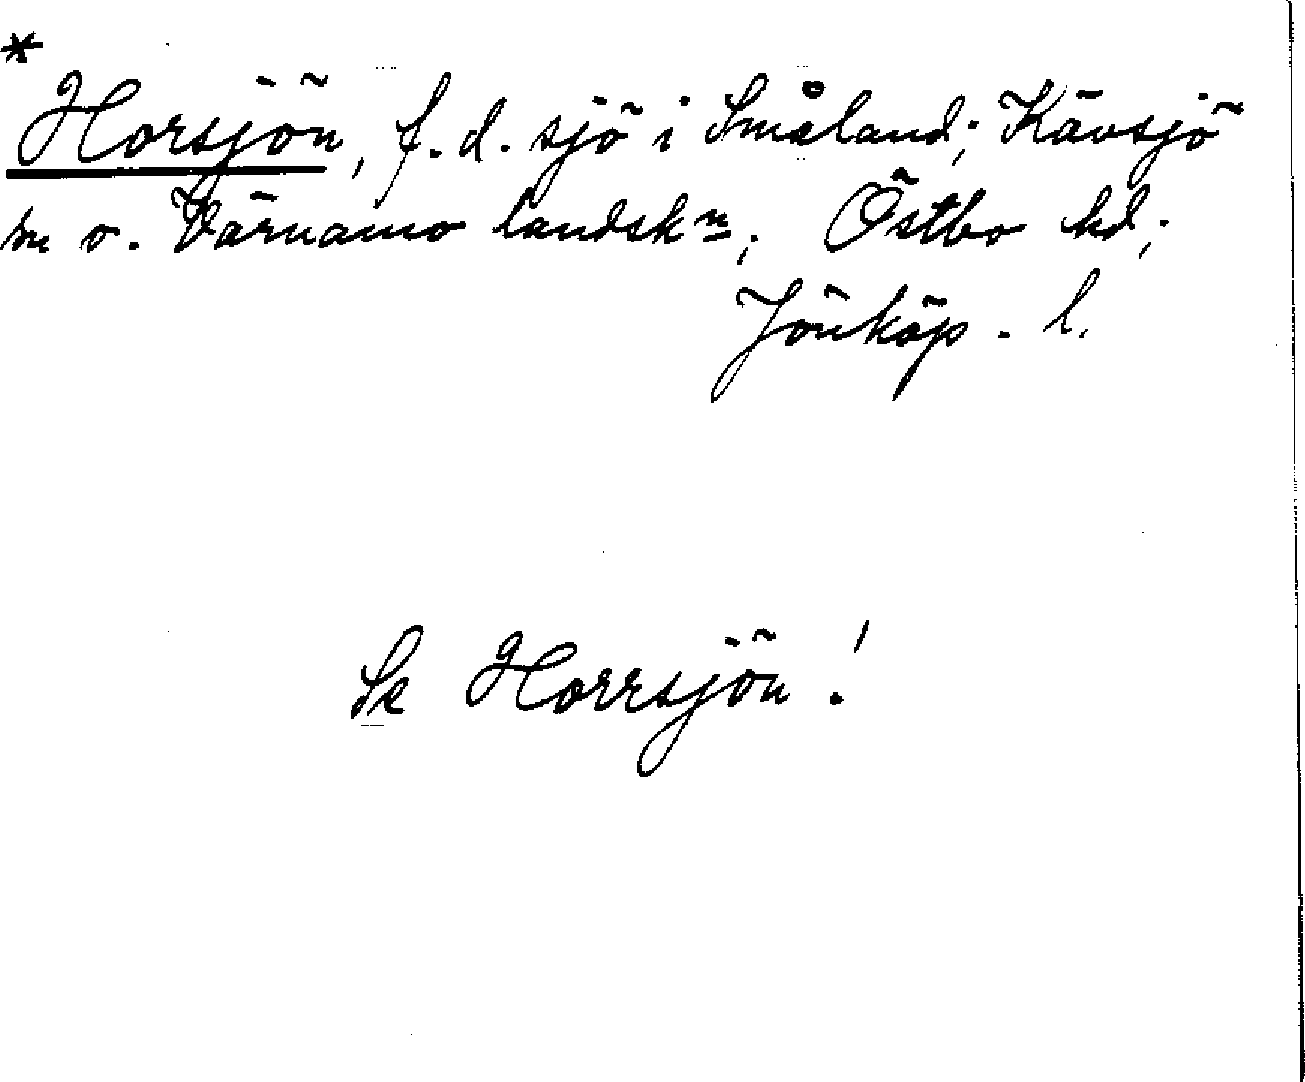 *
Horsjön, f. d. sjö i Småland; Kävsjö
sn o. Värnamo landskn; Östbo hd;
Jönköp. l.
Se Horrsjön!